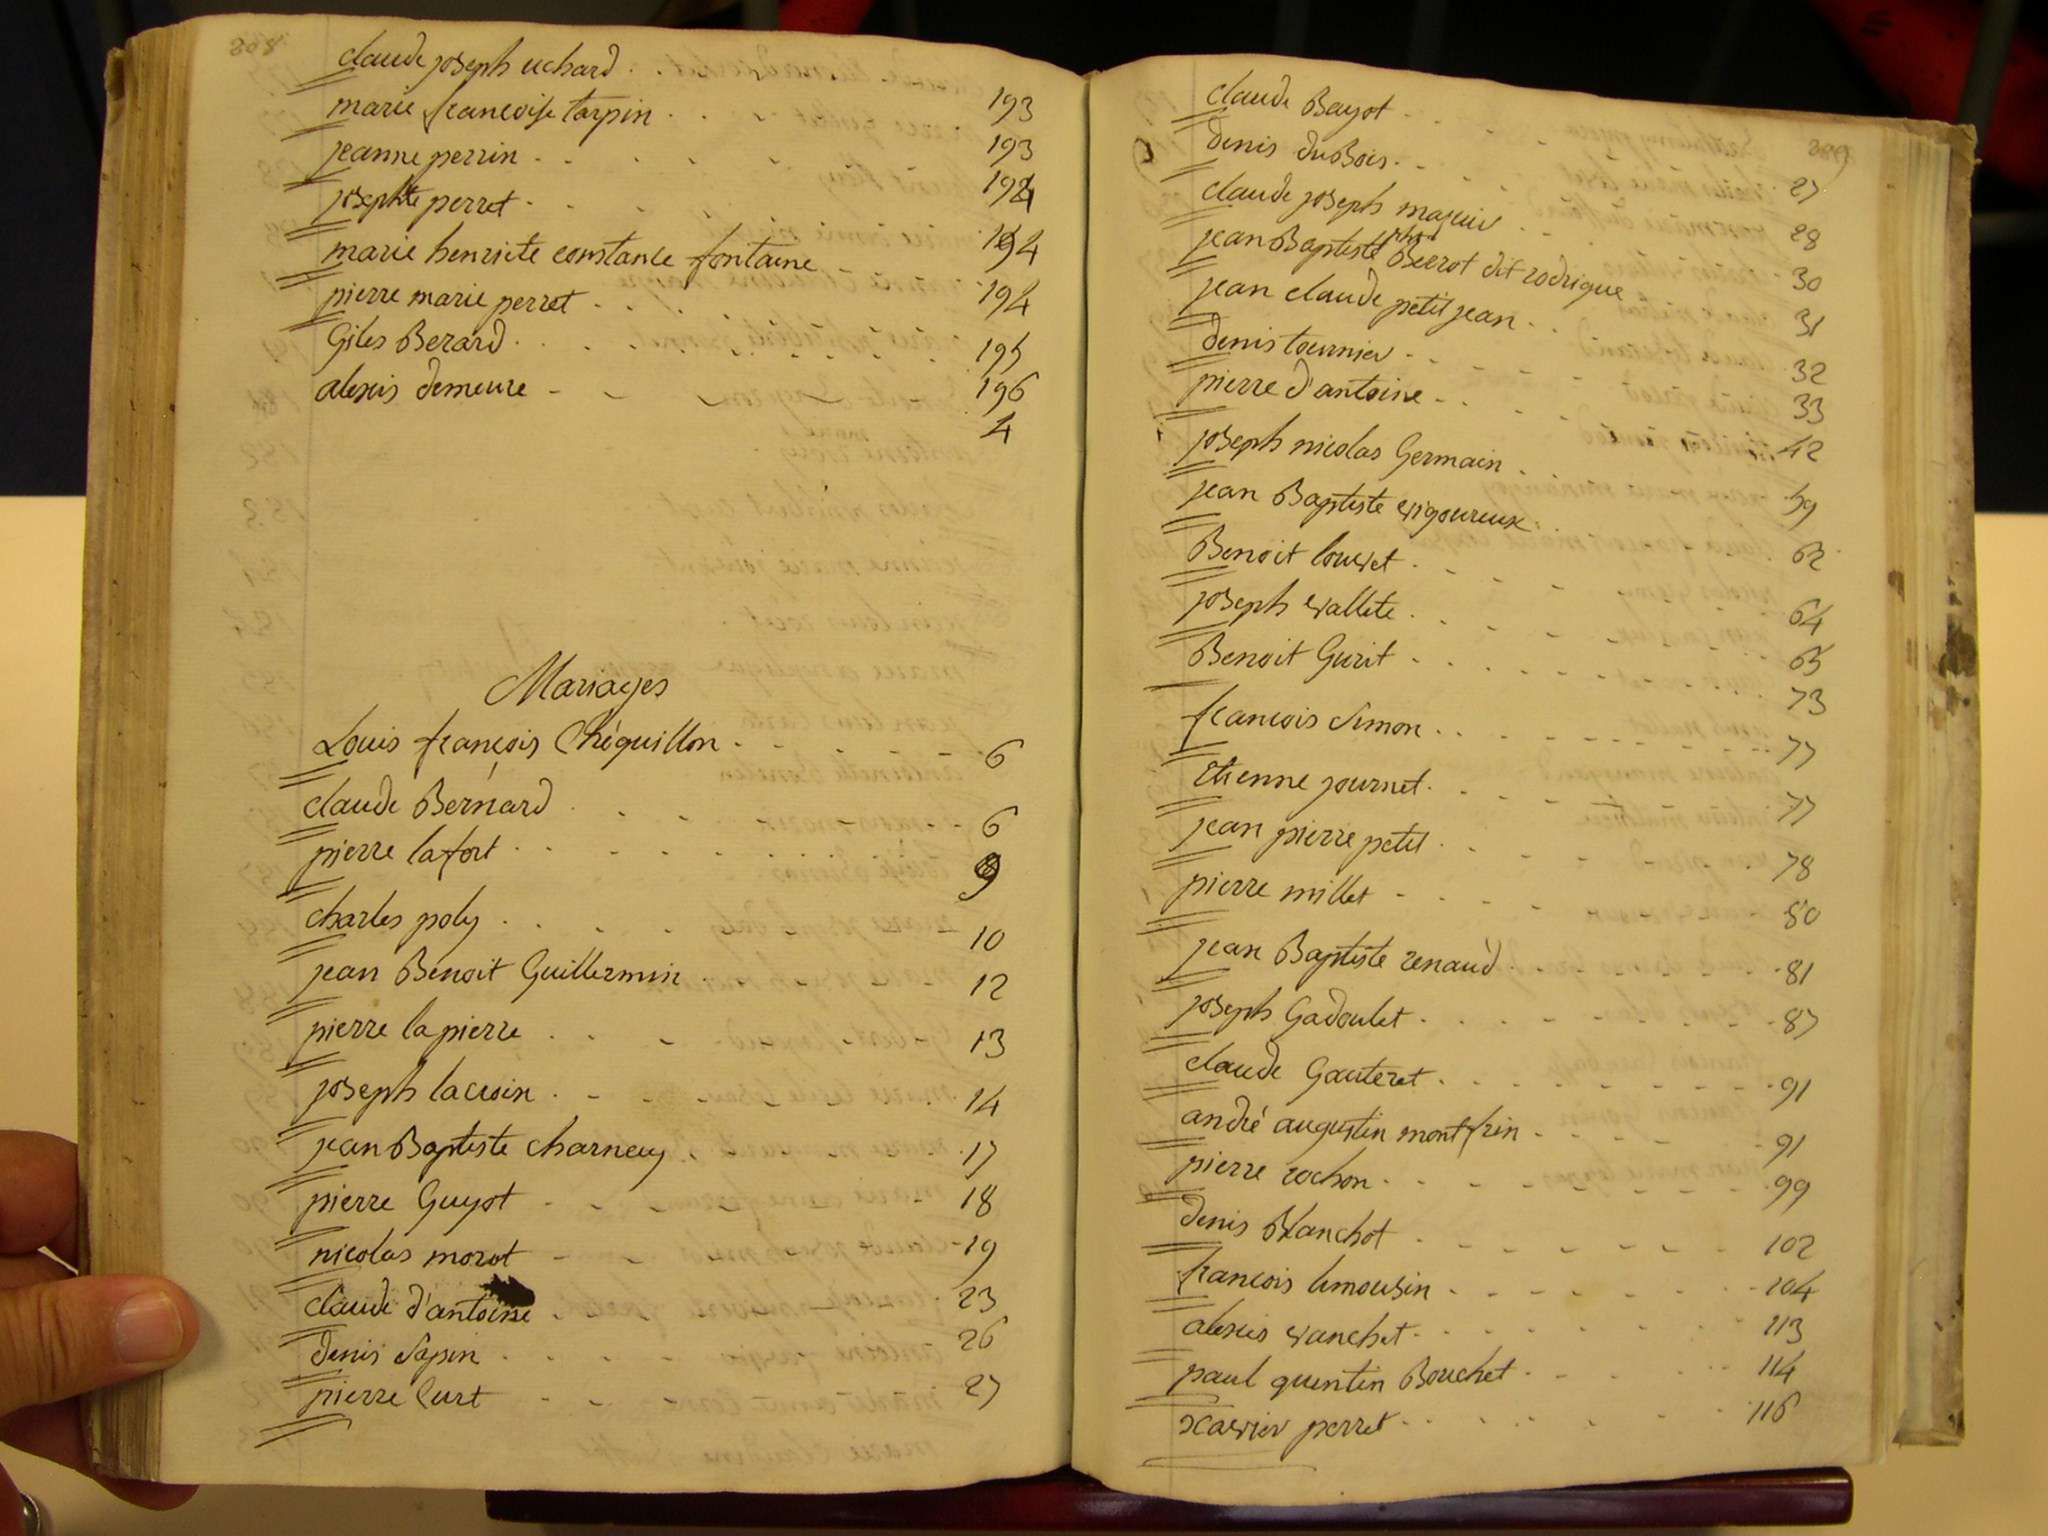 208
claude joseph uchard . . 193
marie francoise tarpin . . . 193
jeanne perrin . . . 194
josephte perret . . . 194
marie henriete constance fontaine 194
pierre marie perret . . . 195
Giles Berard . . . 196
alexis demeure - - - 4
Mariages
Louis françois Chéquillon . . 6
claude Bernard . . . 6
pierre lafort . . . 9
charles poly . . . 10
jean Benoit Guillermin . 12
pierre lapierre . . . 13
joseph lacroix . - - 14
jean Baptiste charney 17
pierre Guyot - - - 18
nicolas morot - - - 19
claude d'antoine . . 23
denis Sapin . . . 26
pierre Curt - - - 27
209
claude Bayot . . . 27
denis duBois . . . 28
claude joseph maguin . . 30
jean Baptiste Becrot dit rodrigue 31
jean claude petit jean . . 32
denis tournier . . . 33
pierre d'antoine - . . 42
joseph nicolas Germain . . 59
jean Baptiste vigoureux . . 62
Benoit louvet . . . 64
joseph vallete . . . 65
Benoit Gurit . . . 73
francois Simon . . . 77
Etienne journet . . . 77
jean pierre petit . . . 78
pierre millet - . . 80
jean Baptiste renaud . . 81
joseph Gadoulet . . . 87
claude Gauteret . . . 91
andré augustin montfrin - . . 91
pierre rochon . . . 99
denis Blanchot . . . 102
francois limousin - . . 104
alexis vanchet . . . 113
paul quentin Bouchet . . . 114
xavier perret . . . 116